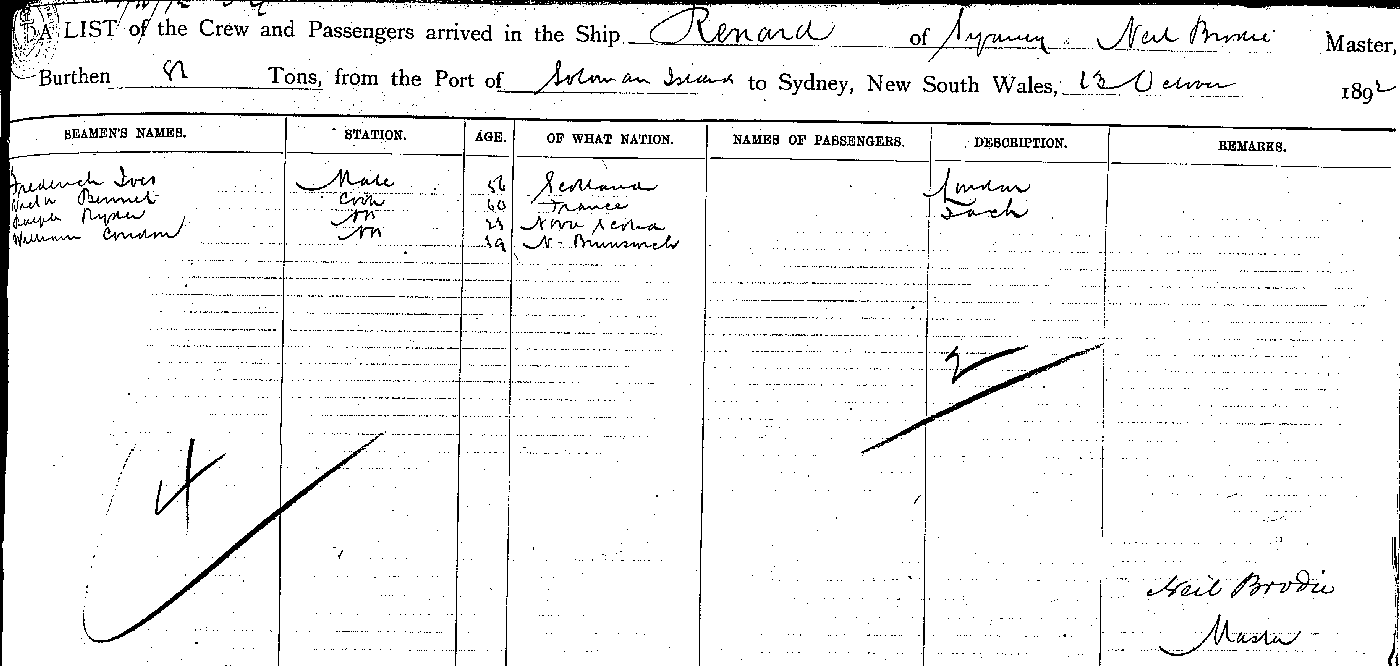 A LIST of the Crew and Passengers arrived in the Ship Renard of Sydney, Neil Brodie Master,
Burthen 82 Tons, from the Port of Soloman Island to Sydney, New South Wales, 13 October 1892
SEAMEN'S NAMES. STATION. AGE. OF WHAT NATION. NAMES OF PASSENGERS. DESCRIPTION. REMARKS.
Frederick Ives Mate 56 Scotland London
Bennet Cook 60 France
Ralph Ryder AB 23 Nova Scotia
William Condon AB 39 N. Brunswick
2
4
Neil Brodie
Master